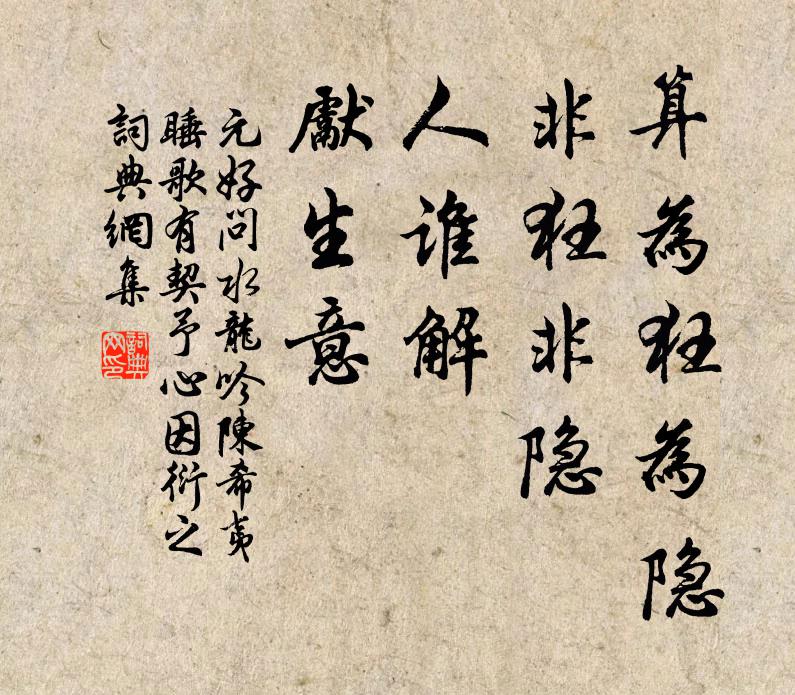 算為狂為隐
非狂非隐
人谁解
獻生意
元好问水龍吟陳希夷
睡歌有契予心因衍之
詞典網集
詞典
网印